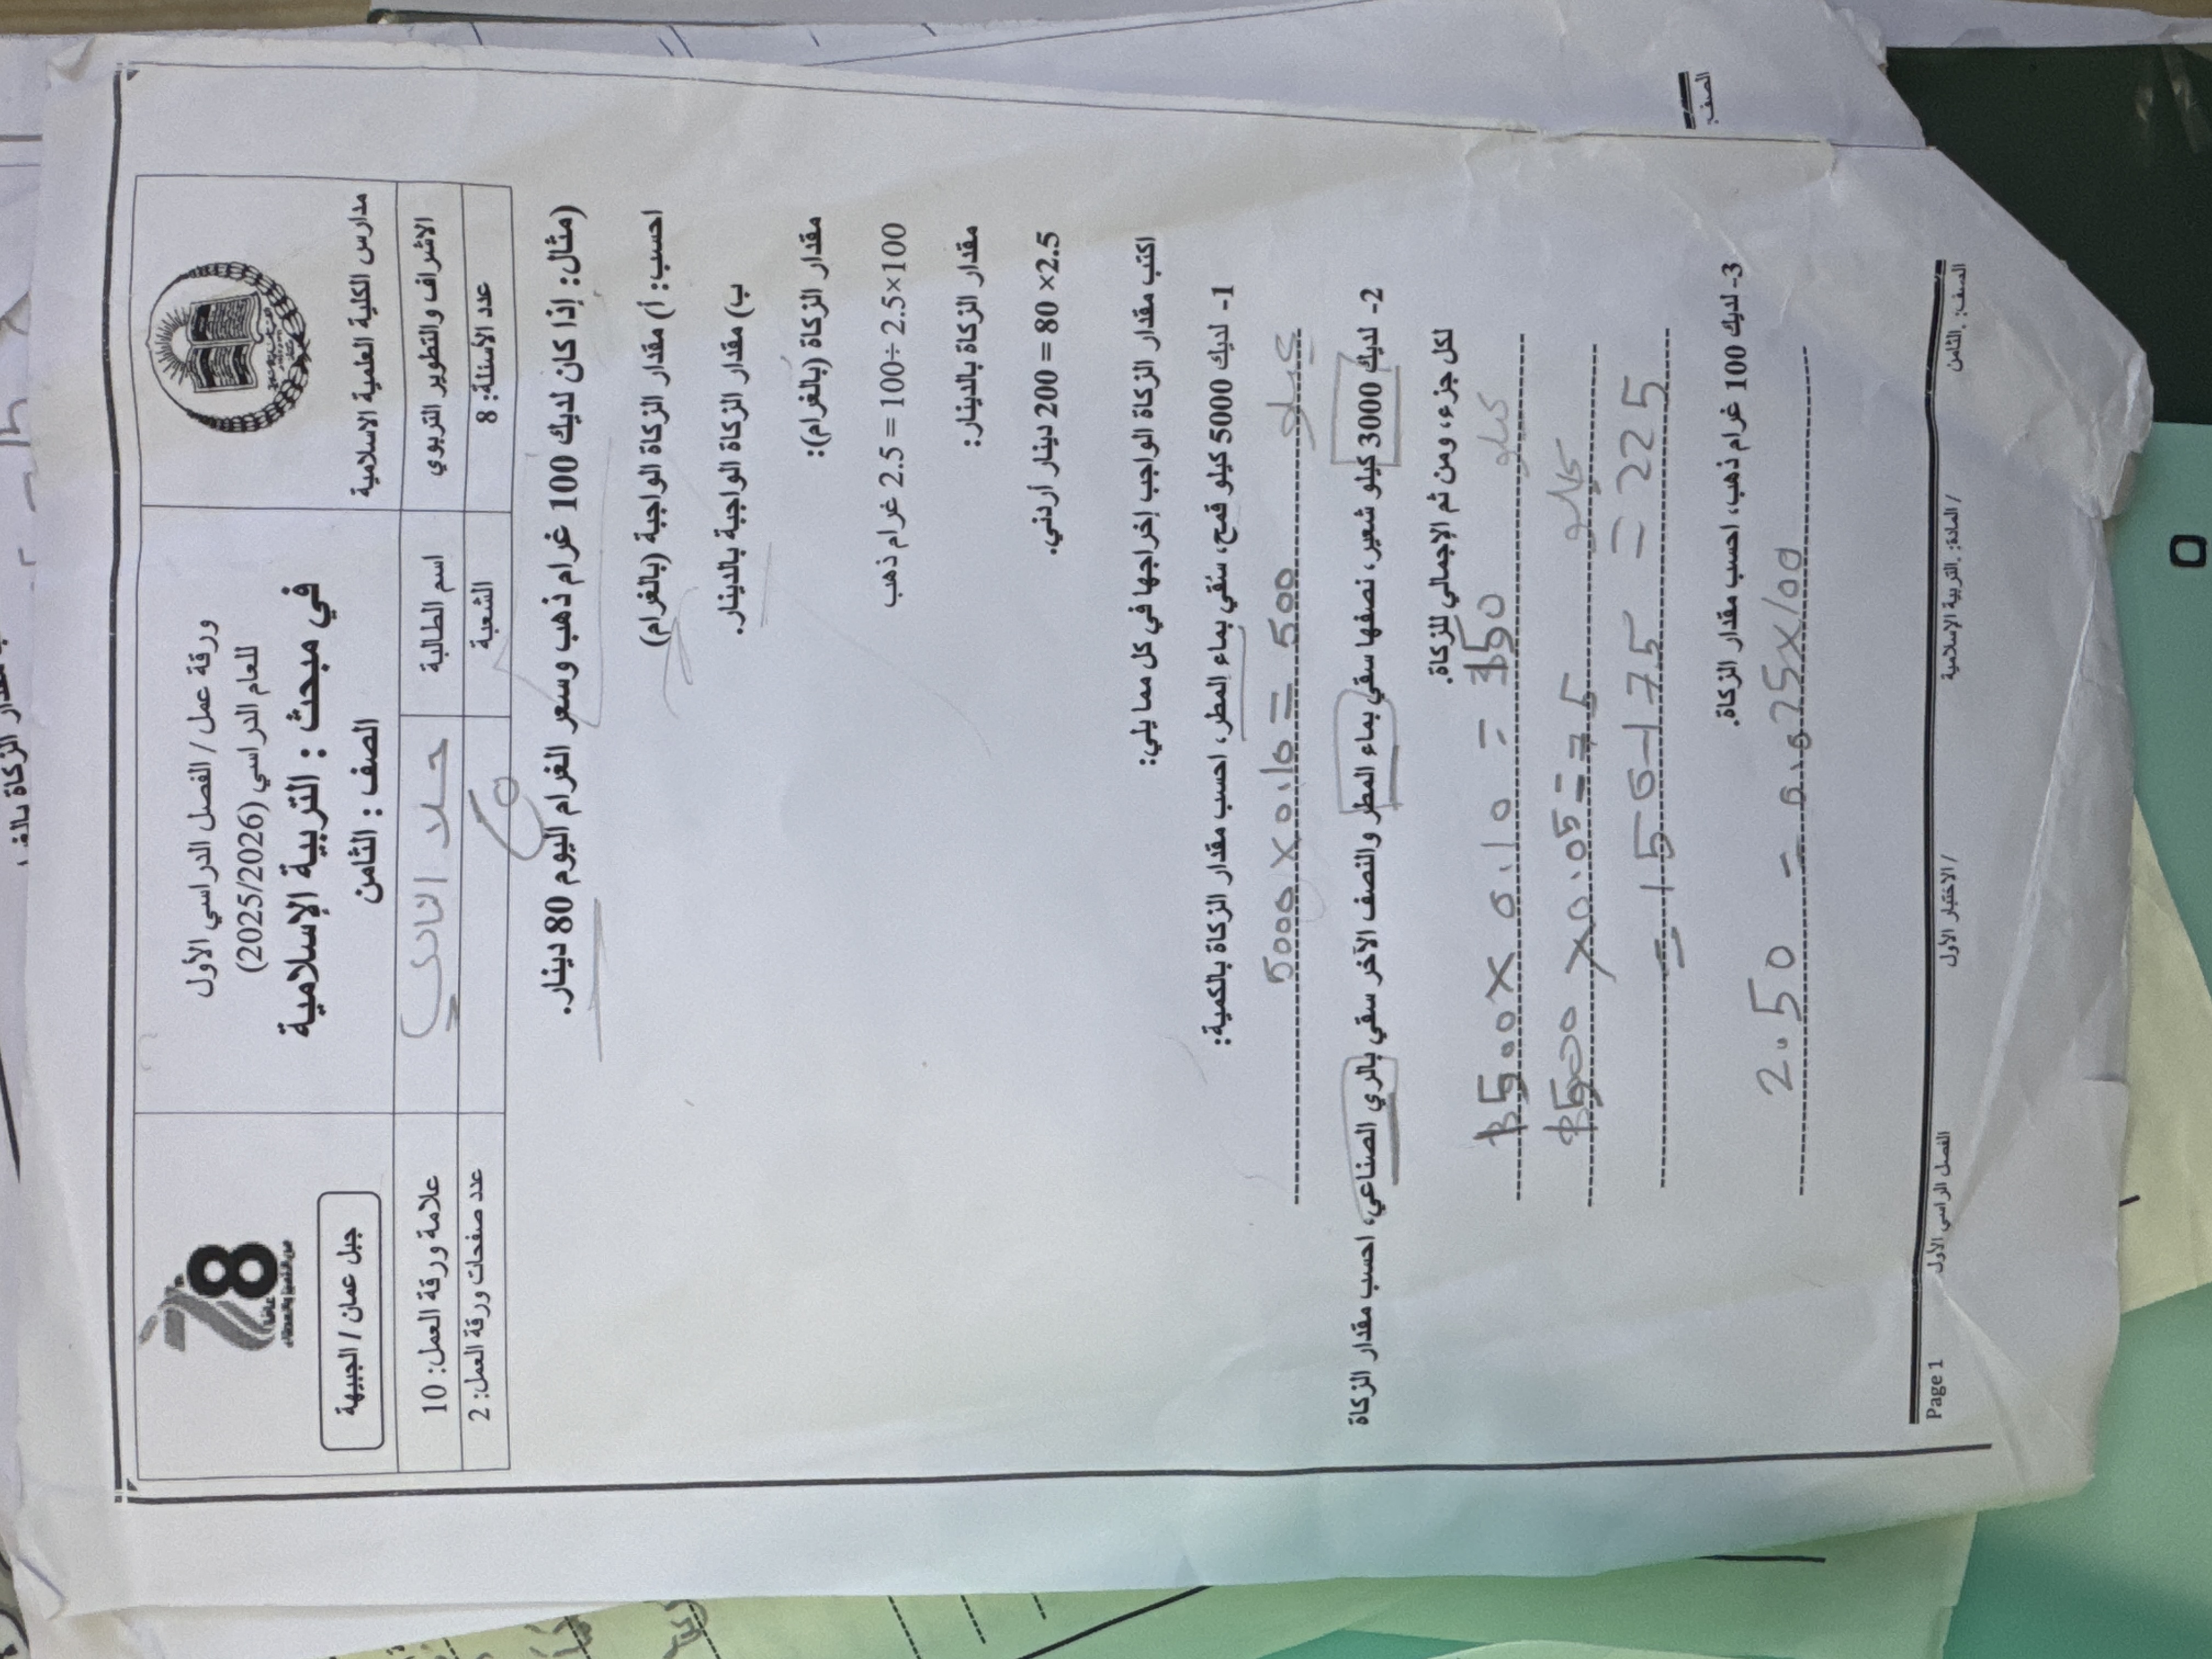 مدارس الكلية العلمية الاسلامية
ورقة عمل / الفصل الدراسي الأول
للعام الدراسي (2025/2026)
في مبحث : التربية الإسلامية
الصف : الثامن
78
عاماً
من التميز والعطاء
جبل عمان / الجبيهة
الاشراف والتطوير التربوي
اسم الطالبة
علامة ورقة العمل: 10
عدد الأسئلة: 8
الشعبة
عدد صفحات ورقة العمل: 2
(مثال: إذا كان لديك 100 غرام ذهب وسعر الغرام اليوم 80 دينار.
احسب: أ) مقدار الزكاة الواجبة (بالغرام)
ب) مقدار الزكاة الواجبة بالدينار.
مقدار الزكاة (بالغرام):
100×2.5 ÷100 = 2.5 غرام ذهب
مقدار الزكاة بالدينار:
2.5× 80 = 200 دينار أردني.
اكتب مقدار الزكاة الواجب إخراجها في كل مما يلي:
1- لديك 5000 كيلو قمح، سُقي بماء المطر، احسب مقدار الزكاة بالكمية:
5000 X 0.10 = 500 كيلو
2- لديك 3000 كيلو شعير، نصفها سقي بماء المطر والنصف الآخر سقي بالري الصناعي، احسب مقدار الزكاة
لكل جزء، ومن ثم الإجمالي للزكاة.
1500 X 0.10 = 150 كيلو
1500 X 0.05 = 75 كيلو
= 150+75 = 225
3- لديك 100 غرام ذهب، احسب مقدار الزكاة.
2.50 = 0.025X100
Page 1 الفصل الراسي الأول / الاختبار الأول / المادة: التربية الإسلامية الصف: الثامن
الصف: